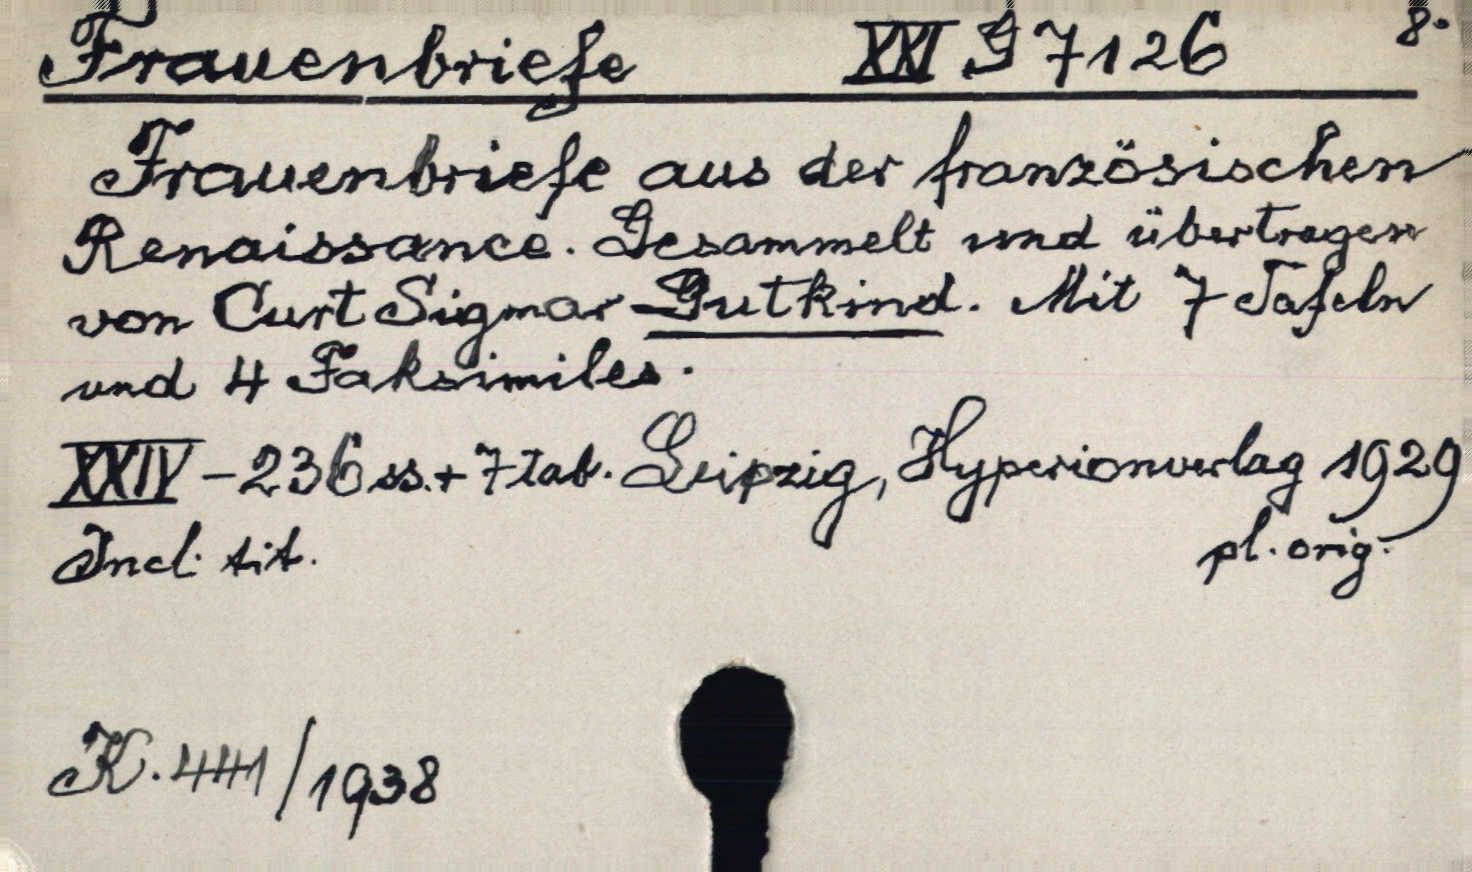 Frauenbriefe XXI G 7126 8°
Frauenbriefe aus der französischen
Renaissance. Gesammelt und übertragen
von Curt Sigmar Gutkind. Mit 7 Tafeln
und 4 Faksimiles.
XXIV - 236 ss. + 7 tab. Leipzig, Hyperionverlag 1929
Incl. tit. pl. orig.
K. 441/1938